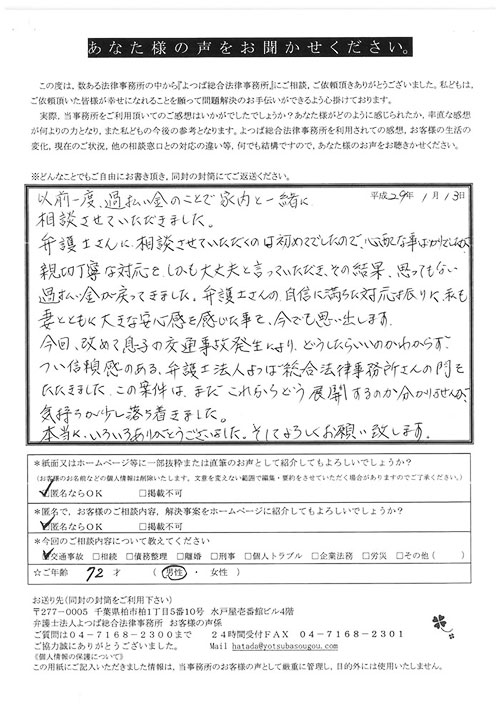 あなた様の声をお聞かせください。
この度は、数ある法律事務所の中から『よつば総合法律事務所』にご相談、ご依頼頂きありがとうございました。私どもは、
ご依頼頂いた皆様が幸せになれることを願って問題解決のお手伝いができるよう心掛けております。
実際、当事務所をご利用頂いてのご感想はいかがでしたでしょうか？あなた様がどのように感じられたか、率直な感想
が何よりの力となり、また私どもの今後の参考となります。よつば総合法律事務所を利用されての感想、お客様の生活の
変化、現在のご状況、他の相談窓口との対応の違い等、何でも結構ですので、あなた様のお声をお聴きかせください。
※どんなことでもご自由にお書き頂き、同封の封筒にてご返送ください。
平成29年1月13日
以前一度、過払い金のことで家内と一緒に
相談させていただきました。
弁護士さんに相談させていただくのは初めてでしたので、心配な事ばかりでしたが
親切丁寧な対応を、しかも大丈夫と言っていただき、その結果、思ってもない
過払い金が戻ってきました。弁護士さんの自信に満ちた対応振りに、私も
妻とともに大きな安心感を感じた事を、今でも思い出します。
今回、改めて息子の交通事故発生により、どうしたらいいのかわからず、
つい信頼感のある、弁護士法人よつば総合法律事務所さんの門を
たたきました。この案件は、まだこれからどう展開するのか分かりませんが、
気持ちが少し落ち着きました。
本当に、いろいろありがとうございました。そしてよろしくお願い致します。
＊紙面又はホームページ等に一部抜粋または直筆のお声として紹介してもよろしいでしょうか？
（お客様のお名前などの個人情報は削除いたします。文意を変えない範囲で編集・要約をさせていただく場合がありますのでご了承ください。）
☑匿名ならOK □掲載不可
＊匿名で、お客様のご相談内容、解決事案をホームページに紹介してもよろしいでしょうか？
☑匿名ならOK □掲載不可
＊今回のご相談内容について教えてください
☑交通事故 □相続 □債務整理 □離婚 □刑事 □個人トラブル □企業法務 □労災 □その他（ ）
☆ご年齢 72才 （男性・女性）
お送り先（同封の封筒をご利用下さい）
〒277-0005 千葉県柏市柏1丁目5番10号 水戸屋壱番館ビル4階
弁護士法人よつば総合法律事務所 お客様の声係
ご質問は04-7168-2300まで 24時間受付FAX 04-7168-2301
ご協力誠にありがとうございました。 Mail hatada@yotsubasougou.com
《個人情報の保護について》
この用紙にご記入いただきました情報は、当事務所のお客様の声として厳重に管理し、目的外には使用いたしません。